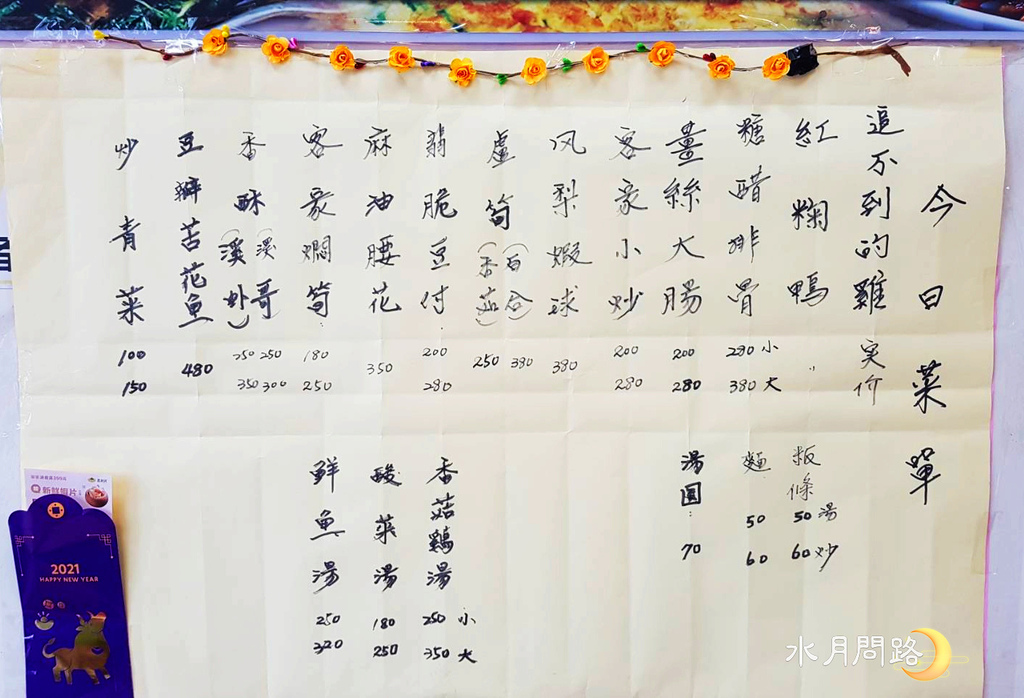 今日菜單
追不到的雞 实价
紅麴鴨 〃
糖醋排骨 280小 380大
薑絲大腸 200 280
客家小炒 200 280
凤梨蝦球 380
盧筍(百合)(香菇) 380 250
翡脆豆付 200 280
麻油腰花 350
客家燜筍 180 250
香酥(溪哥)(溪蝦) 250 300 250 350
豆瓣苦花魚 480
炒青菜 100 150
粄條 50湯 60炒
麵 50 60
湯圓 70
香菇鷄湯 250小 350大
酸菜湯 180 250
鮮魚湯 250 320
2021
HAPPY NEW YEAR
水月問路